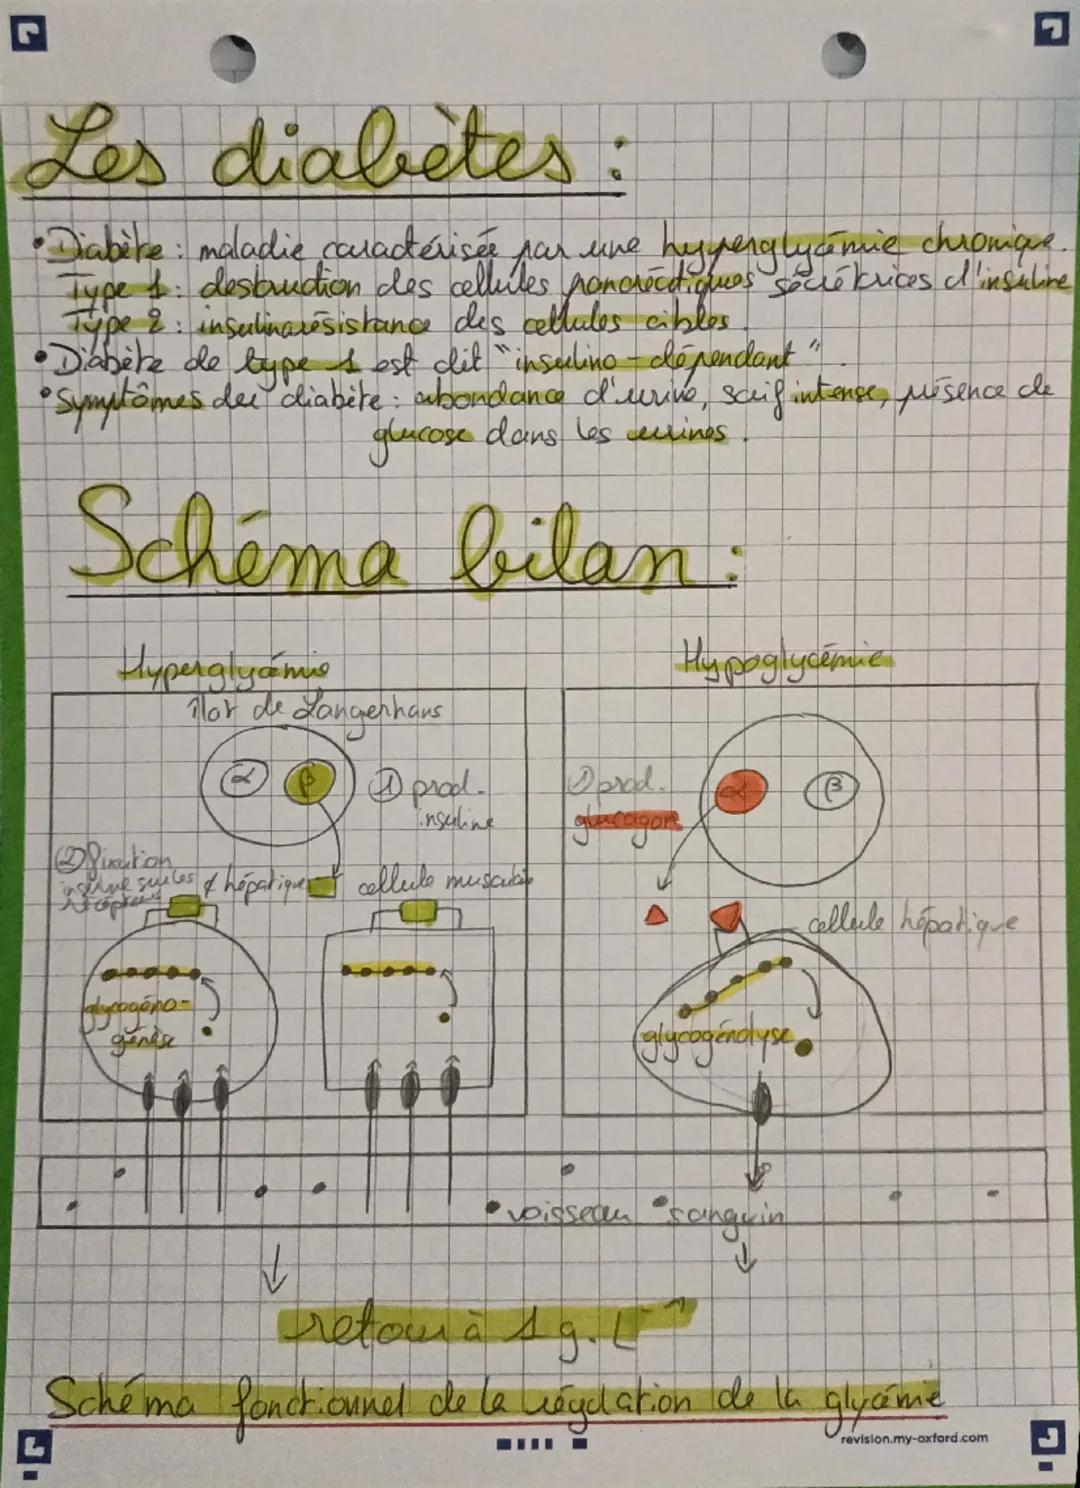 Les diabètes :
• Diabète : maladie caractérisée par une hyperglycémie chronique.
Type 1 : destruction des cellules pancréatiques sécrétrices d'insuline
Type 2 : insulinorésistance des cellules cibles.
• Diabète de type 1 est dit "insulino-dépendant".
• Symptômes du diabète : abondance d'urine, soif intense, présence de
glucose dans les urines.
Schéma bilan :
Hyperglycémie
îlot de Langerhans
α
β
① prod.
insuline
② fixation
insuline sur les
récepteurs
¢ hépatique
cellule musculaire
glycogéno-
génèse
Hypoglycémie
① prod.
glucagon
α
β
cellule hépatique
glycogénolyse
vaisseau sanguin
retour à 1 g.L⁻¹
Schéma fonctionnel de la régulation de la glycémie
revision.my-oxford.com